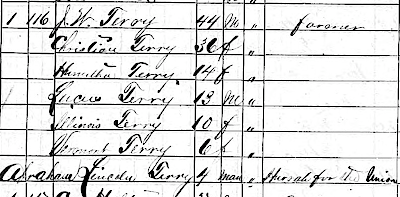 1 116 J. W. Terry 44 M " farmer
Christian Terry 36 f "
Hamilton Terry 14 f "
Lucus Terry 13 M "
Illinois Terry 10 f "
Vermont Terry 6 f "
Abraham Lincoln Terry 4 man " Hurrah for the Union